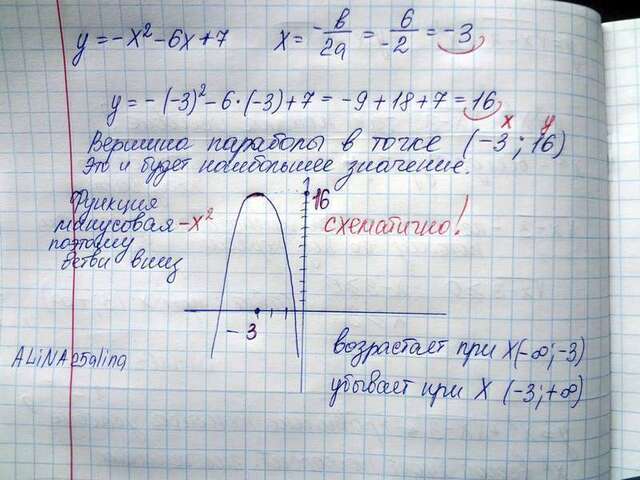 y = -x² - 6x + 7    x = -в/2a = 6/-2 = -3
y = -(-3)² - 6·(-3) + 7 = -9 + 18 + 7 = 16
x y
Вершина параболы в точке (-3; 16)
Это и будет наибольшее значение.
Функция
минусовая -x²
поэтому
ветви вниз
16
схематично!
-3
ALiNA25alina
возрастает при X(-∞; -3)
убывает при X (-3; +∞)